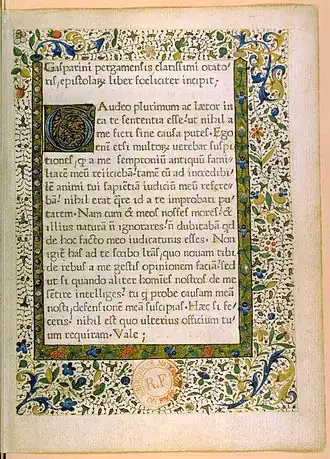 Gasparini pergamensis clarissimi orato/
ris, epistolaꝝ liber fœliciter incipit;
GAudeo plurimum ac lætor in
ea te sententia esse, ut nihil a
me fieri sine causa putes. Ego
enī etsi multoꝝ uerebar suspi/
tiones, ꝙ a me semproniū antiquū fami/
liarē meū reiiciebā. tamē cū ad incredibi/
lē animi tui sapiētiā iudiciū meū refere/
bā. nihil erat quare id a te improbari pu/
tarem. Nam cum & meos nosses mores. &
illius naturā nō ignorares. nō dubitabā qd
de hoc facto meo iudicaturus esses. Non
igiť has ad te scribo lr̄as, quo nouam tibi
de rebus a me gestis opinionem faciā. sed
ut si quando aliter homīes nostros de me
sētire intelliges. tu q̄ probe causam meā
nosti, defensionē meā suscipias. Hæc si fe/
ceris. nihil est quo ulterius officium tu/
um requiram. Vale;
R.F.